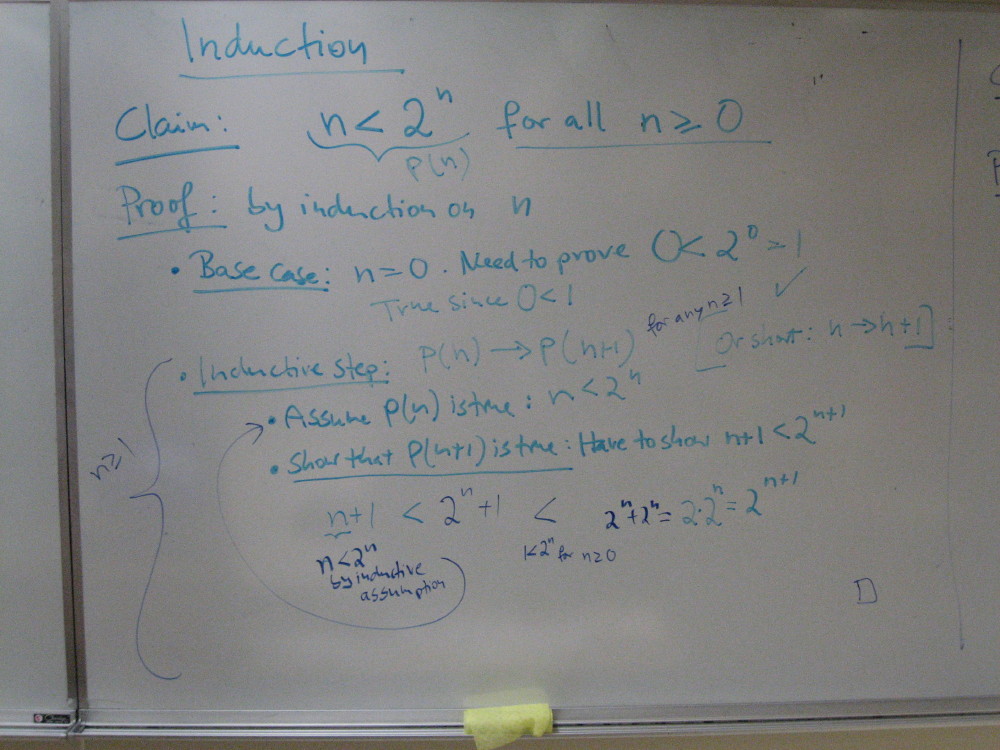 Induction
Claim: n < 2^n for all n ≥ 0
P(n)
Proof: by induction on n
• Base case: n = 0. Need to prove 0 < 2^0 = 1
True since 0 < 1 ✓
• Inductive step: P(n) → P(n+1) for any n ≥ 1 [Or short: n → n+1]
• Assume P(n) is true: n < 2^n
• Show that P(n+1) is true: Have to show n+1 < 2^{n+1}
n ≥ 1
n+1 < 2^n + 1 < 2^n + 2^n = 2·2^n = 2^{n+1}
n < 2^n
by inductive
assumption
1 < 2^n for n ≥ 0
□